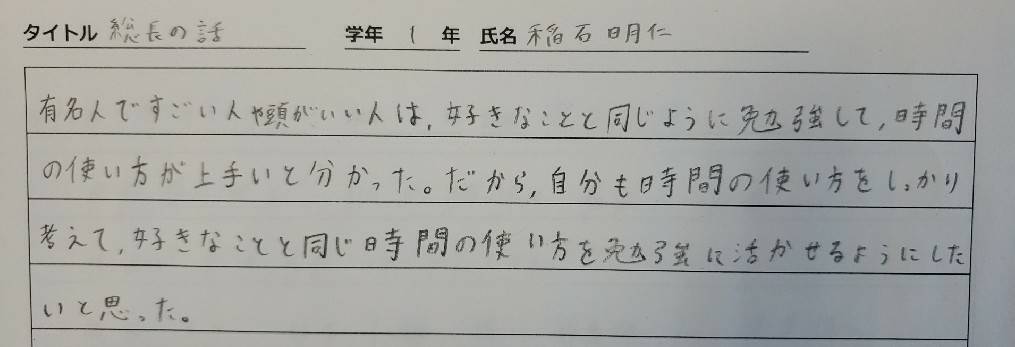 タイトル 総長の話 学年 1 年 氏名 稲石明仁
有名人ですごい人や頭がいい人は,好きなことと同じように勉強して,時間
の使い方が上手いと分かった。だから,自分も時間の使い方をしっかり
考えて,好きなことと同じ時間の使い方を勉強に活かせるようにした
いと思った。